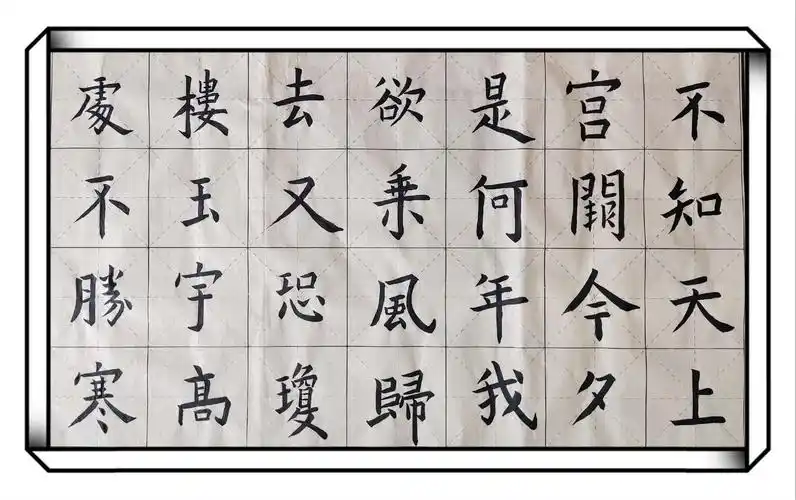 不知天上
宫闕今夕
是何年我
欲乗風歸
去又恐瓊
樓玉宇高
處不勝寒